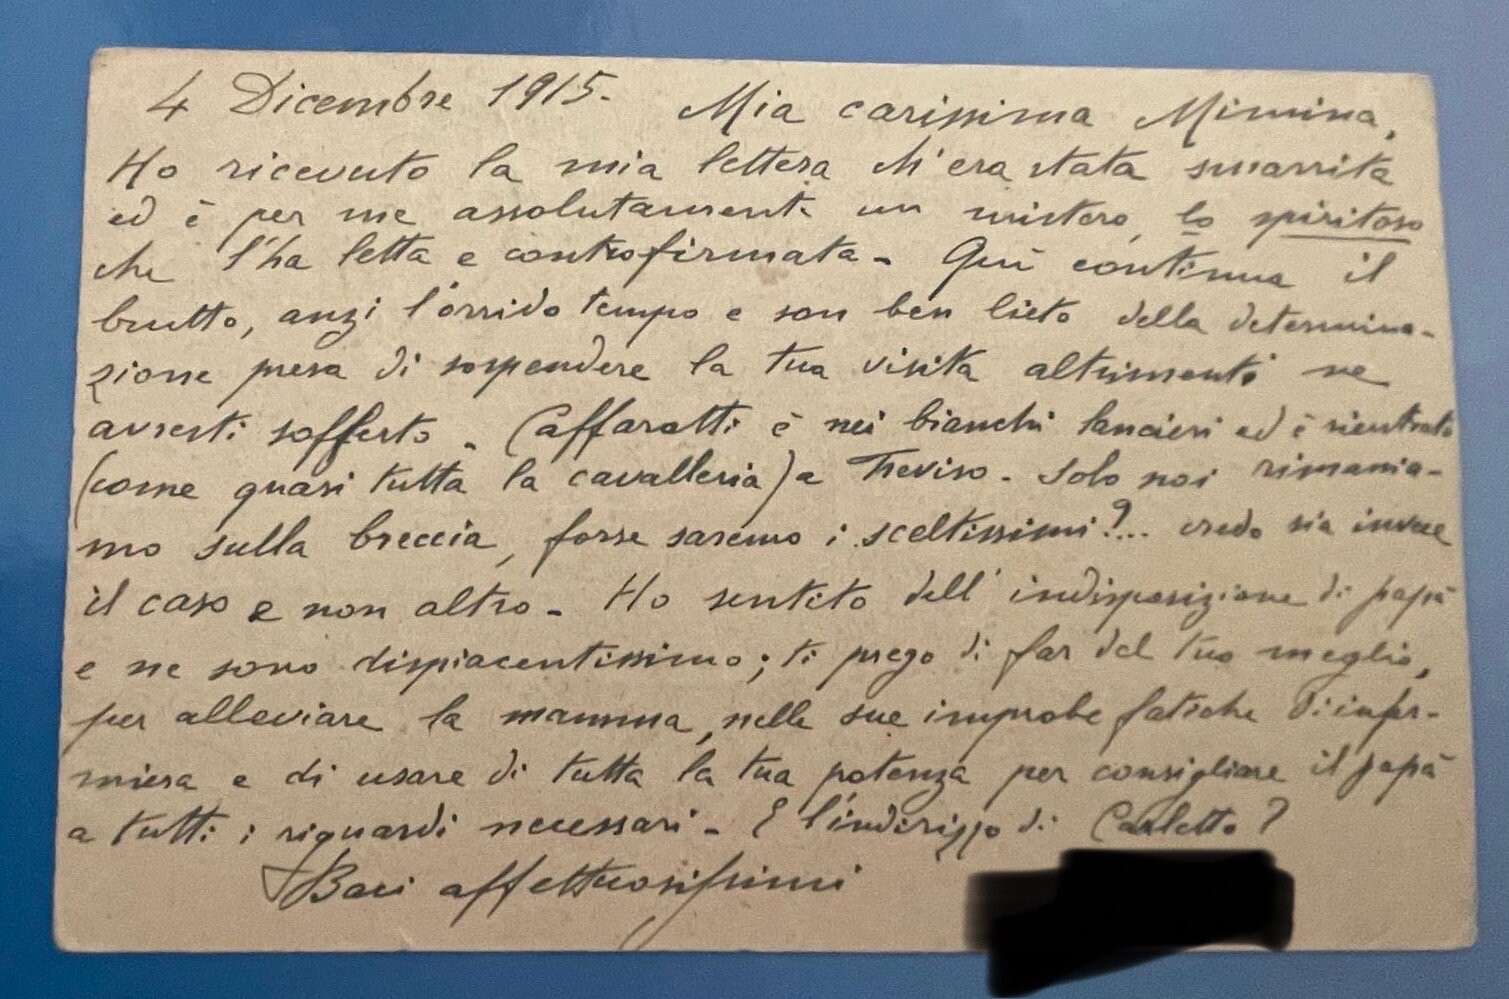 4 Dicembre 1915. Mia carissima Mimina,
Ho ricevuto la mia lettera ch'era stata smarrita
ed è per me assolutamente un mistero, lo spiritoso
che l'ha letta e controfirmata - Quì continua il
brutto, anzi l'orrido tempo e son ben lieto della determina-
zione presa di sospendere la tua visita altrimenti ne
avresti sofferto - Caffaratti è nei bianchi lancieri ed è rientrato
(come quasi tutta la cavalleria) a Treviso - Solo noi rimania-
mo sulla breccia, forse saremo i sceltissimi?... credo sia invece
il caso e non altro - Ho sentito dell'indisposizione di papà
e ne sono dispiacentissimo; ti prego di far del tuo meglio,
per alleviare la mamma, nelle sue improbe fatiche di infer-
miera e di usare di tutta la tua potenza per consigliare il papà
a tutti i riguardi necessari - E l'indirizzo di Carletto?
Baci affettuosissimi